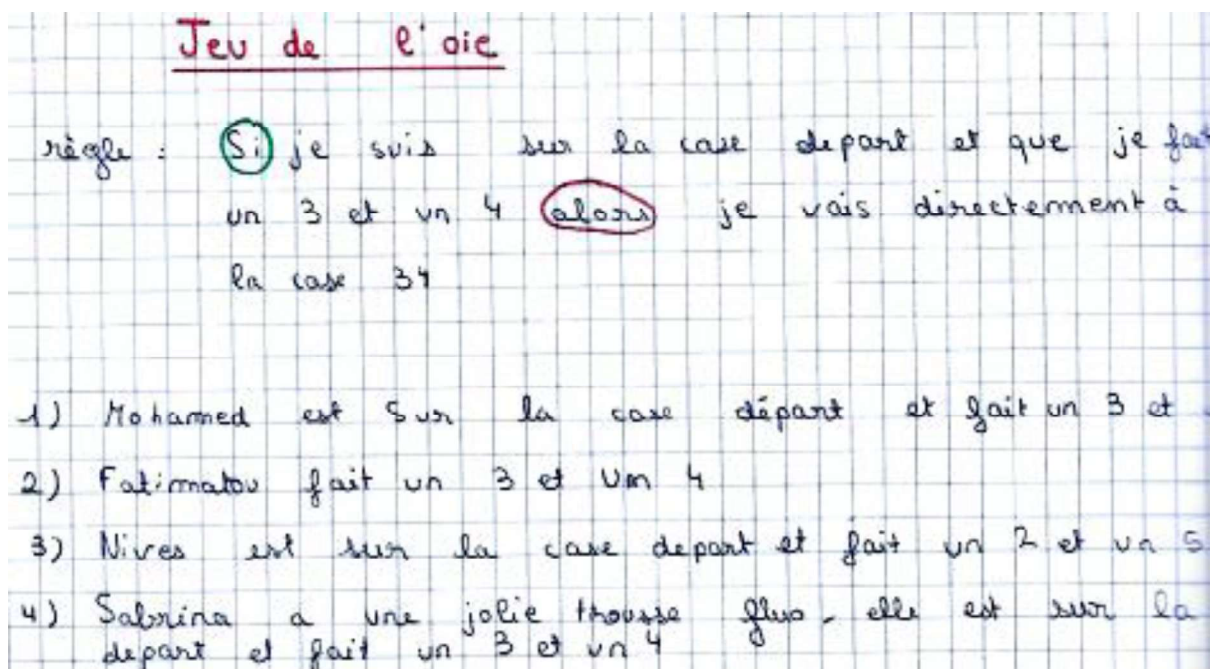 Jeu de l'oie
règle : Si je suis sur la case depart et que je fait
un 3 et un 4 alors je vais directement à
la case 34
1) Mohamed est sur la case départ et fait un 3 et
2) Fatimatou fait un 3 et un 4
3) Nives est sur la case depart et fait un 2 et un 5
4) Sabrina a une jolie trousse fluo - elle est sur la
depart et fait un 3 et un 4